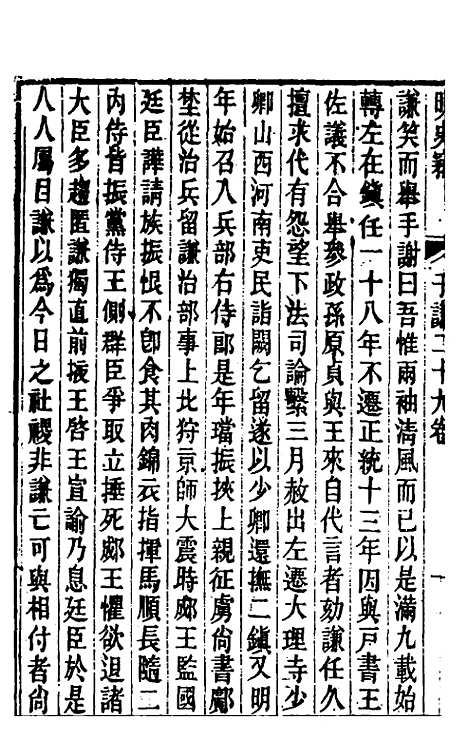 明史竊 于謙二十九卷
謙笑而舉手謝曰吾惟兩袖清風而已以是滿九載始
轉左在鎮任一十八年不遷正統十三年因與戶書王
佐議不合舉參政孫原貞與王來自代言者劾謙任久
擅來代有怨望下法司論繫三月赦出左遷大理寺少
卿山西河南吏民詣闕乞留遂以少卿還撫二鎮又明
年始召入兵部右侍郎是年璫振挾上親征虜尚書鄺
埜從治兵留謙治部事上北狩京師大震時郕王監國
廷臣譁請族振恨不卽食其肉錦衣指揮馬順長隨二
內侍皆振黨侍王側群臣爭取立捶死郕王懼欲退諸
大臣多趨匿謙獨直前掖王啓王宣諭乃息廷臣於是
人人屬目謙以爲今日之社稷非謙亡可與相付者尚